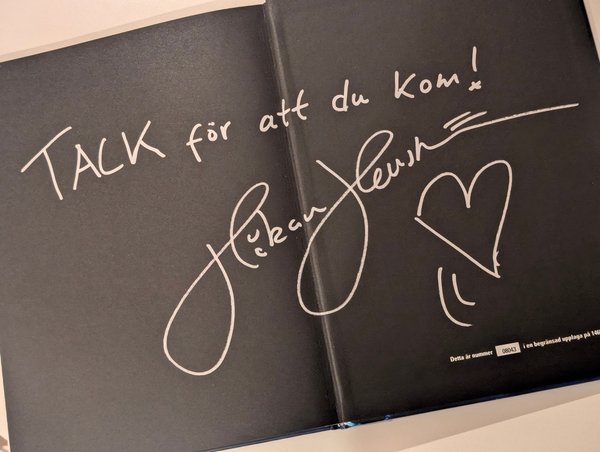 TACK för att du kom!
Håkan
Detta är nummer 08043 i en begränsad upplaga på